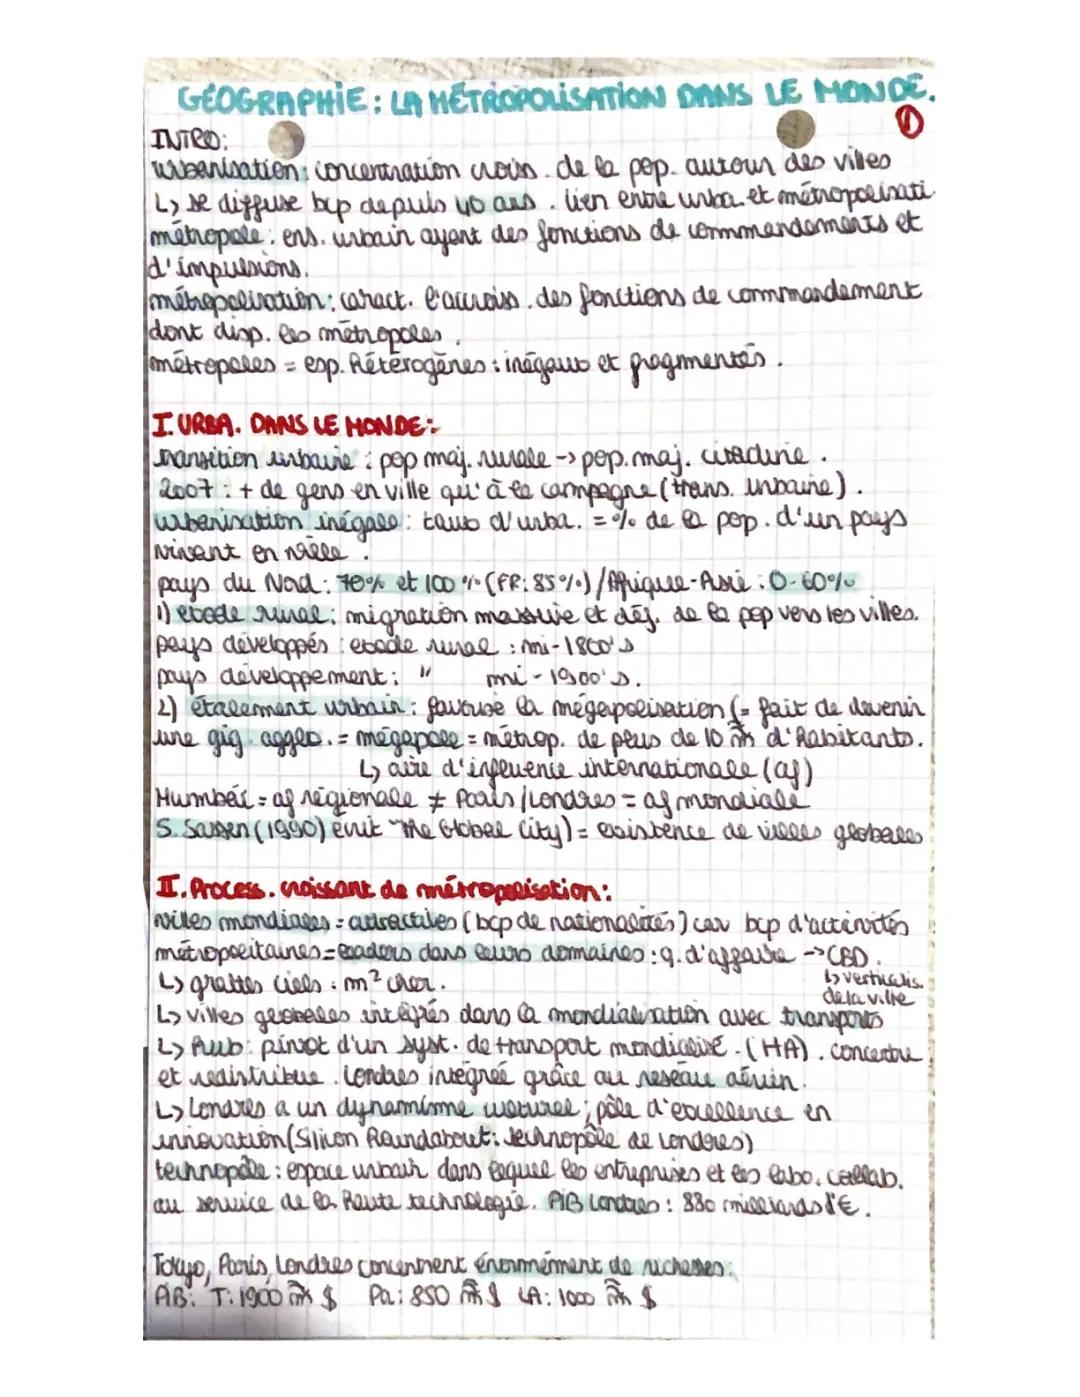 GÉOGRAPHIE : LA MÉTROPOLISATION DANS LE MONDE.
1
INTRO:
urbanisation : concentration croiss. de la pop. autour des villes
↳ se diffuse bcp depuis 40 ans. lien entre urba. et métropolisati.
métropole : ens. urbain ayant des fonctions de commmandements et
d'impulsions.
métropolisation : caract. l'accroiss. des fonctions de commmandement
dont disp. les métropoles.
métropoles = esp. hétérogènes : inégaux et fragmentés.
I. URBA. DANS LE MONDE:
transition urbaine : pop maj. rurale -> pop. maj. citadine.
2007 : + de gens en ville qu'à la campagne (trans. urbaine).
urbanisation inégale : taux d'urba. = % de la pop. d'un pays
vivant en ville.
pays du Nord : 70% et 100% (FR: 85%) / Afrique-Asie : 0-60%
1) exode rural : migration massive et déf. de la pop vers les villes.
pays développés : exode rural : mi-1800's
pays développement : " mi-1900's.
2) étalement urbain : favorise la mégapolisation (= fait de devenir
une gig. agglo. = mégapole = métrop. de plus de 10 m d'habitants.
↳ aire d'influence internationale (af)
Mumbái = af régionale ≠ Paris/Londres = af mondiale
S. Sassen (1990) écrit "The Global City) = existence de villes globales
II. Process. croissant de métropolisation:
villes mondiales = attractives (bcp de nationalités) car bcp d'activités
métropolitaines = leaders dans leurs domaines : q. d'affaire -> CBD.
↳ verticalis.
de la ville
↳ grattes ciels : m² cher.
↳ villes globales intégrés dans la mondialisation avec transports
↳ hub : pivot d'un syst. de transport mondialisé. (HA). concentre
et redistribue. Londres intégrée grâce au réseau aérien.
↳ Londres a un dynamisme culturel ; pôle d'excellence en
innovation (Silicon Roundabout : technopôle de Londres)
technopôle : espace urbain dans lequel les entreprises et les labo. collab.
au service de la haute technologie. PIB Londres : 880 milliards d'€.
Tokyo, Paris, Londres concentrent énormément de richesses:
PIB: T: 1900 $ Pa: 850 $ LA: 1000 $